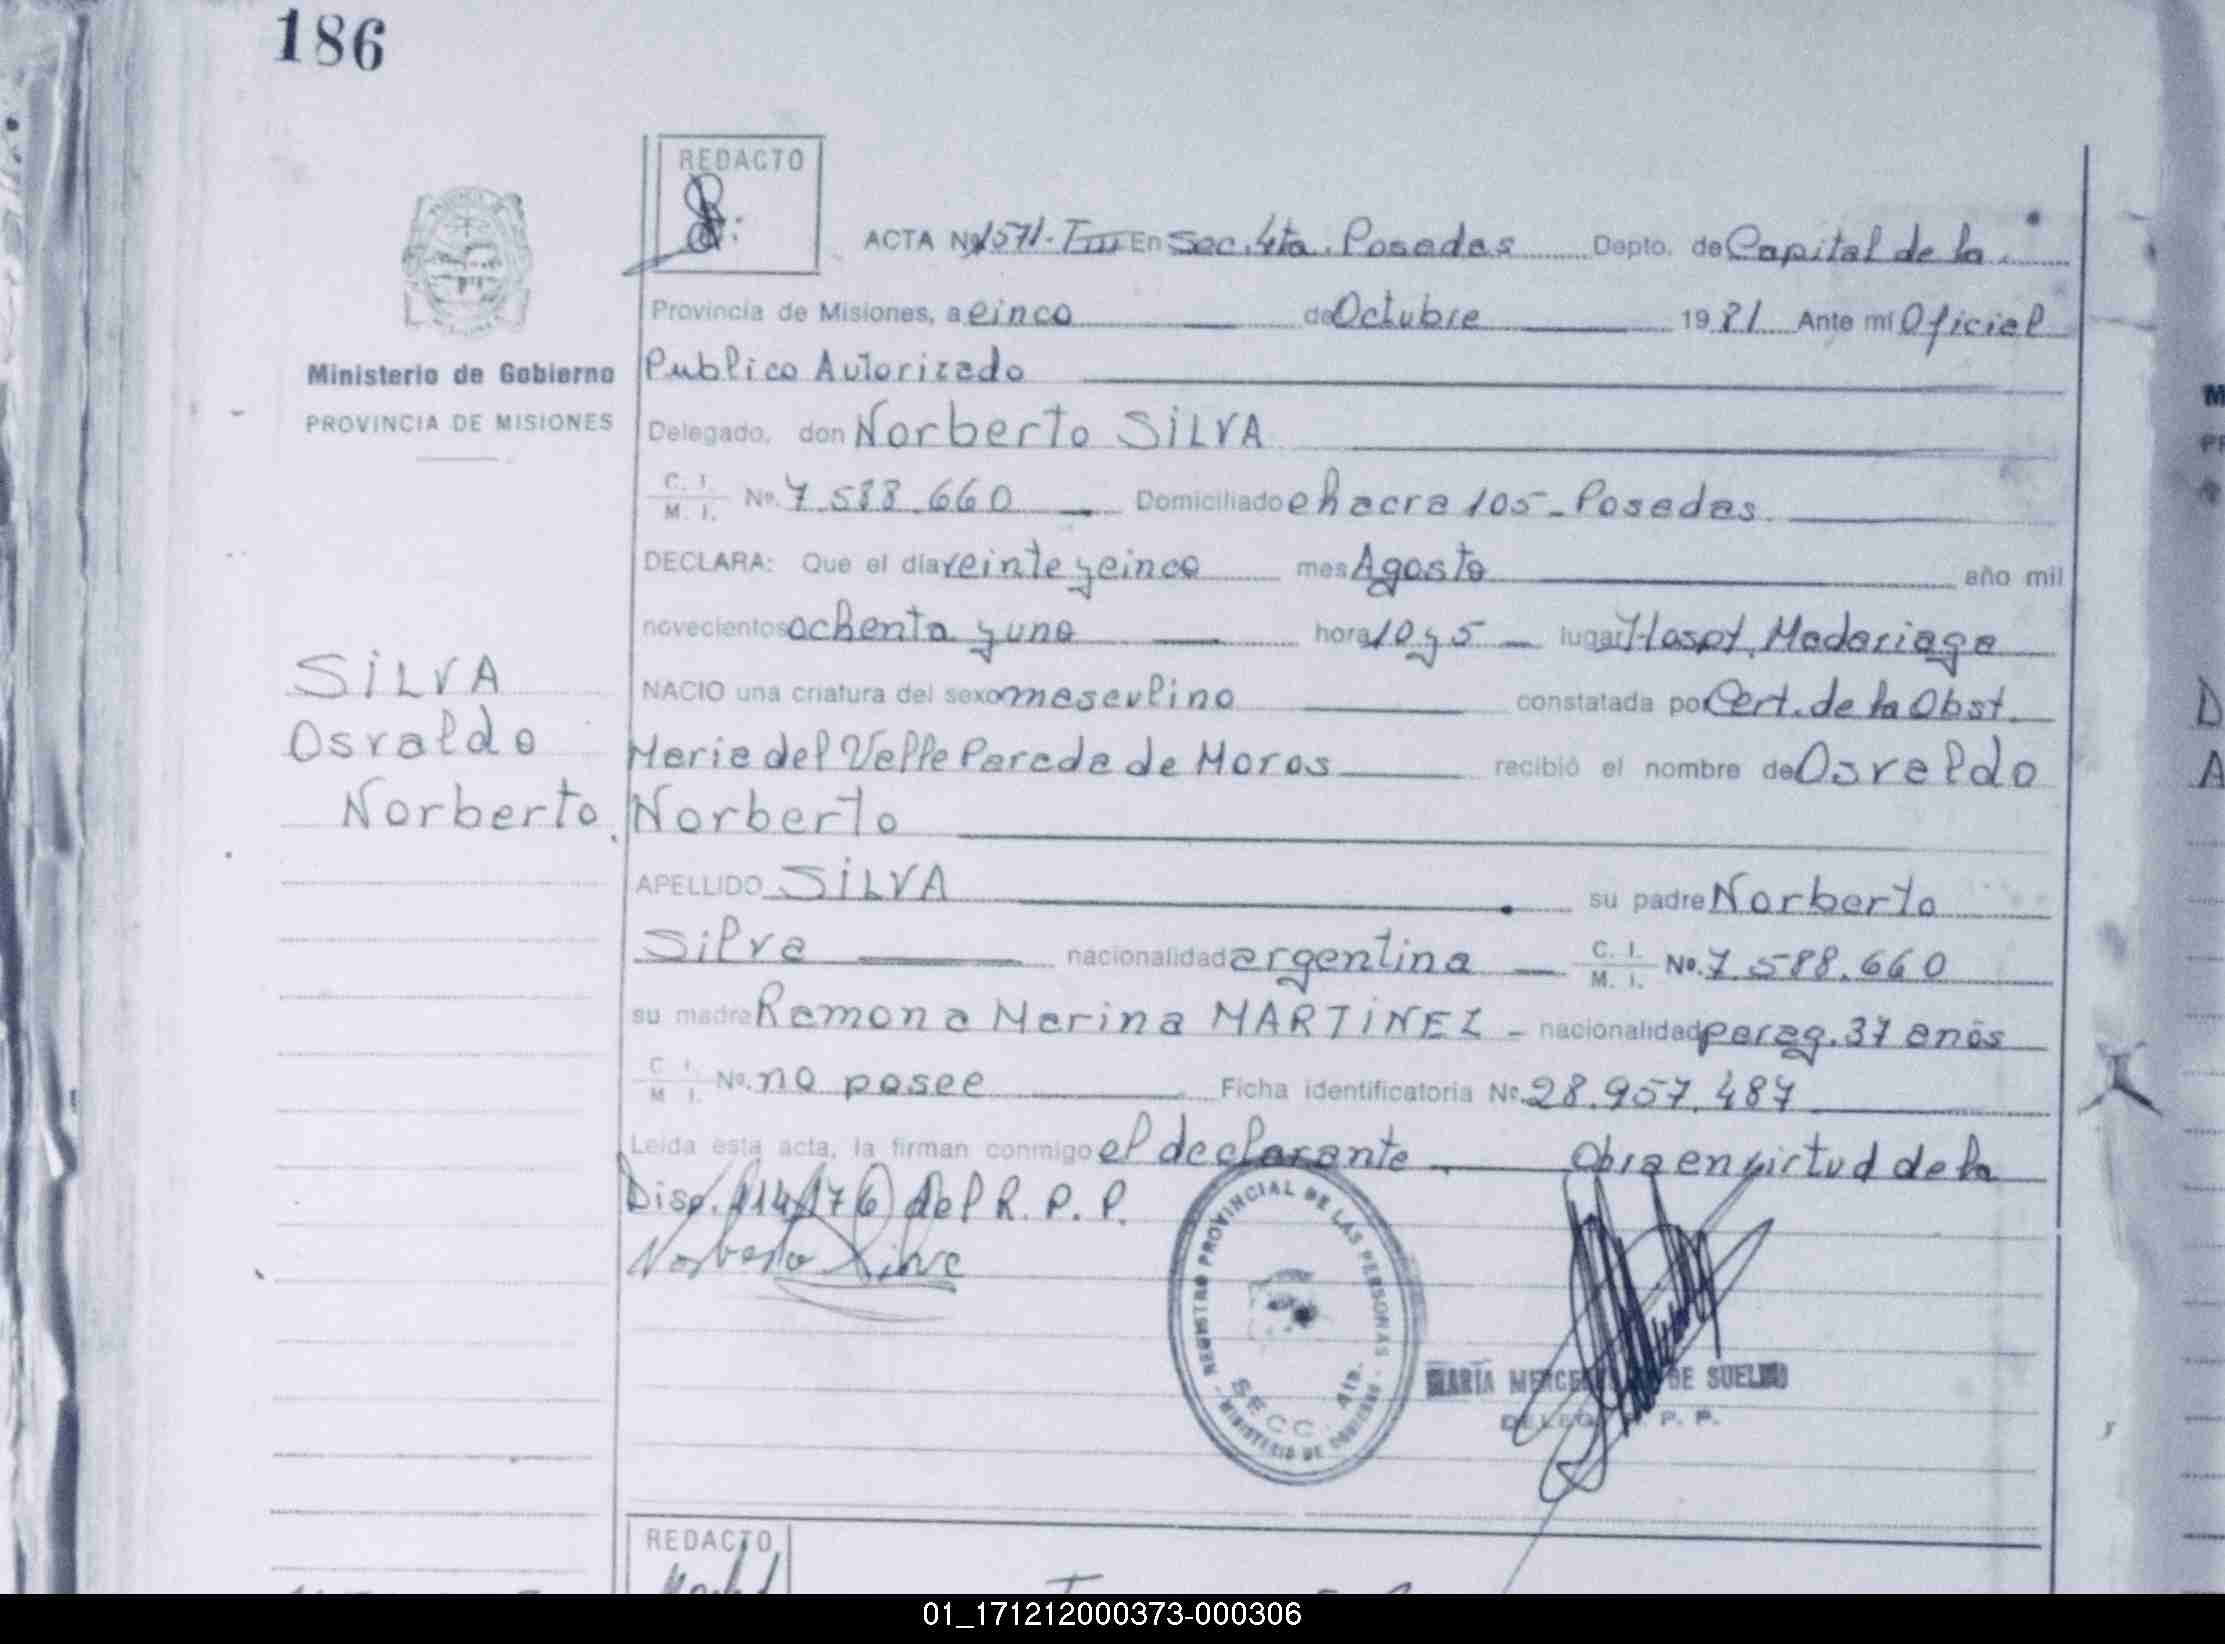 186
REDACTO
ACTA Nº 1571-TIII En Sec. 4ta. Posadas Depto. de Capital de la
Provincia de Misiones, a cinco de Octubre 1981 Ante mí Oficial
Ministerio de Gobierno
PROVINCIA DE MISIONES
Publico Autorizado
Delegado, don Norberto SILVA
C. I.
M. I. Nº. 7.588.660 Domiciliado chacra 105 - Posadas.
DECLARA: Que el día veinte y cinco mes Agosto año mil
novecientos ochenta y uno hora 10 y 5 lugar Hospt. Madariaga
SILVA
Osvaldo
Norberto.
NACIO una criatura del sexo masculino constatada por Cert. de la Obst.
Maria del Valle Parada de Moros recibió el nombre de Osvaldo
Norberto
APELLIDO SILVA su padre Norberto
Silva nacionalidad argentina C. I.
M. I. Nº. 7.588.660
su madre Ramona Marina MARTINEZ - nacionalidad parag. 37 años
C. I.
M. I. Nº. no posee Ficha identificatoria Nº. 28.957.487
Leída esta acta, la firman conmigo el declarante. Obra en virtud de la
Disp. 114/76 del R. P. P.
Norberto Silva
REGISTRO PROVINCIAL DE LAS PERSONAS
SECC. 4ta.
MINISTERIO DE GOBIERNO
MARIA DE SUELDO
P. P.
REDACTO
01_171212000373-000306